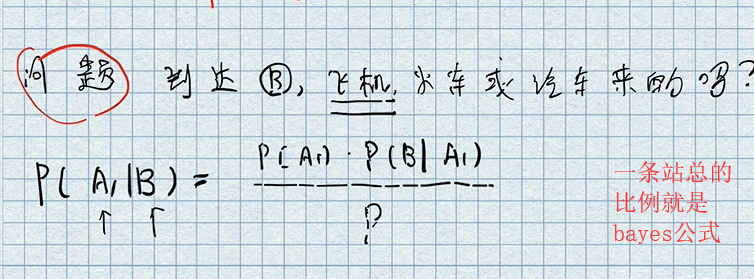 问题 到达 B, 飞机, 火车或汽车来的吗?
P(A₁|B) = P(A₁) · P(B|A₁)
?
一条站总的
比例就是
bayes公式